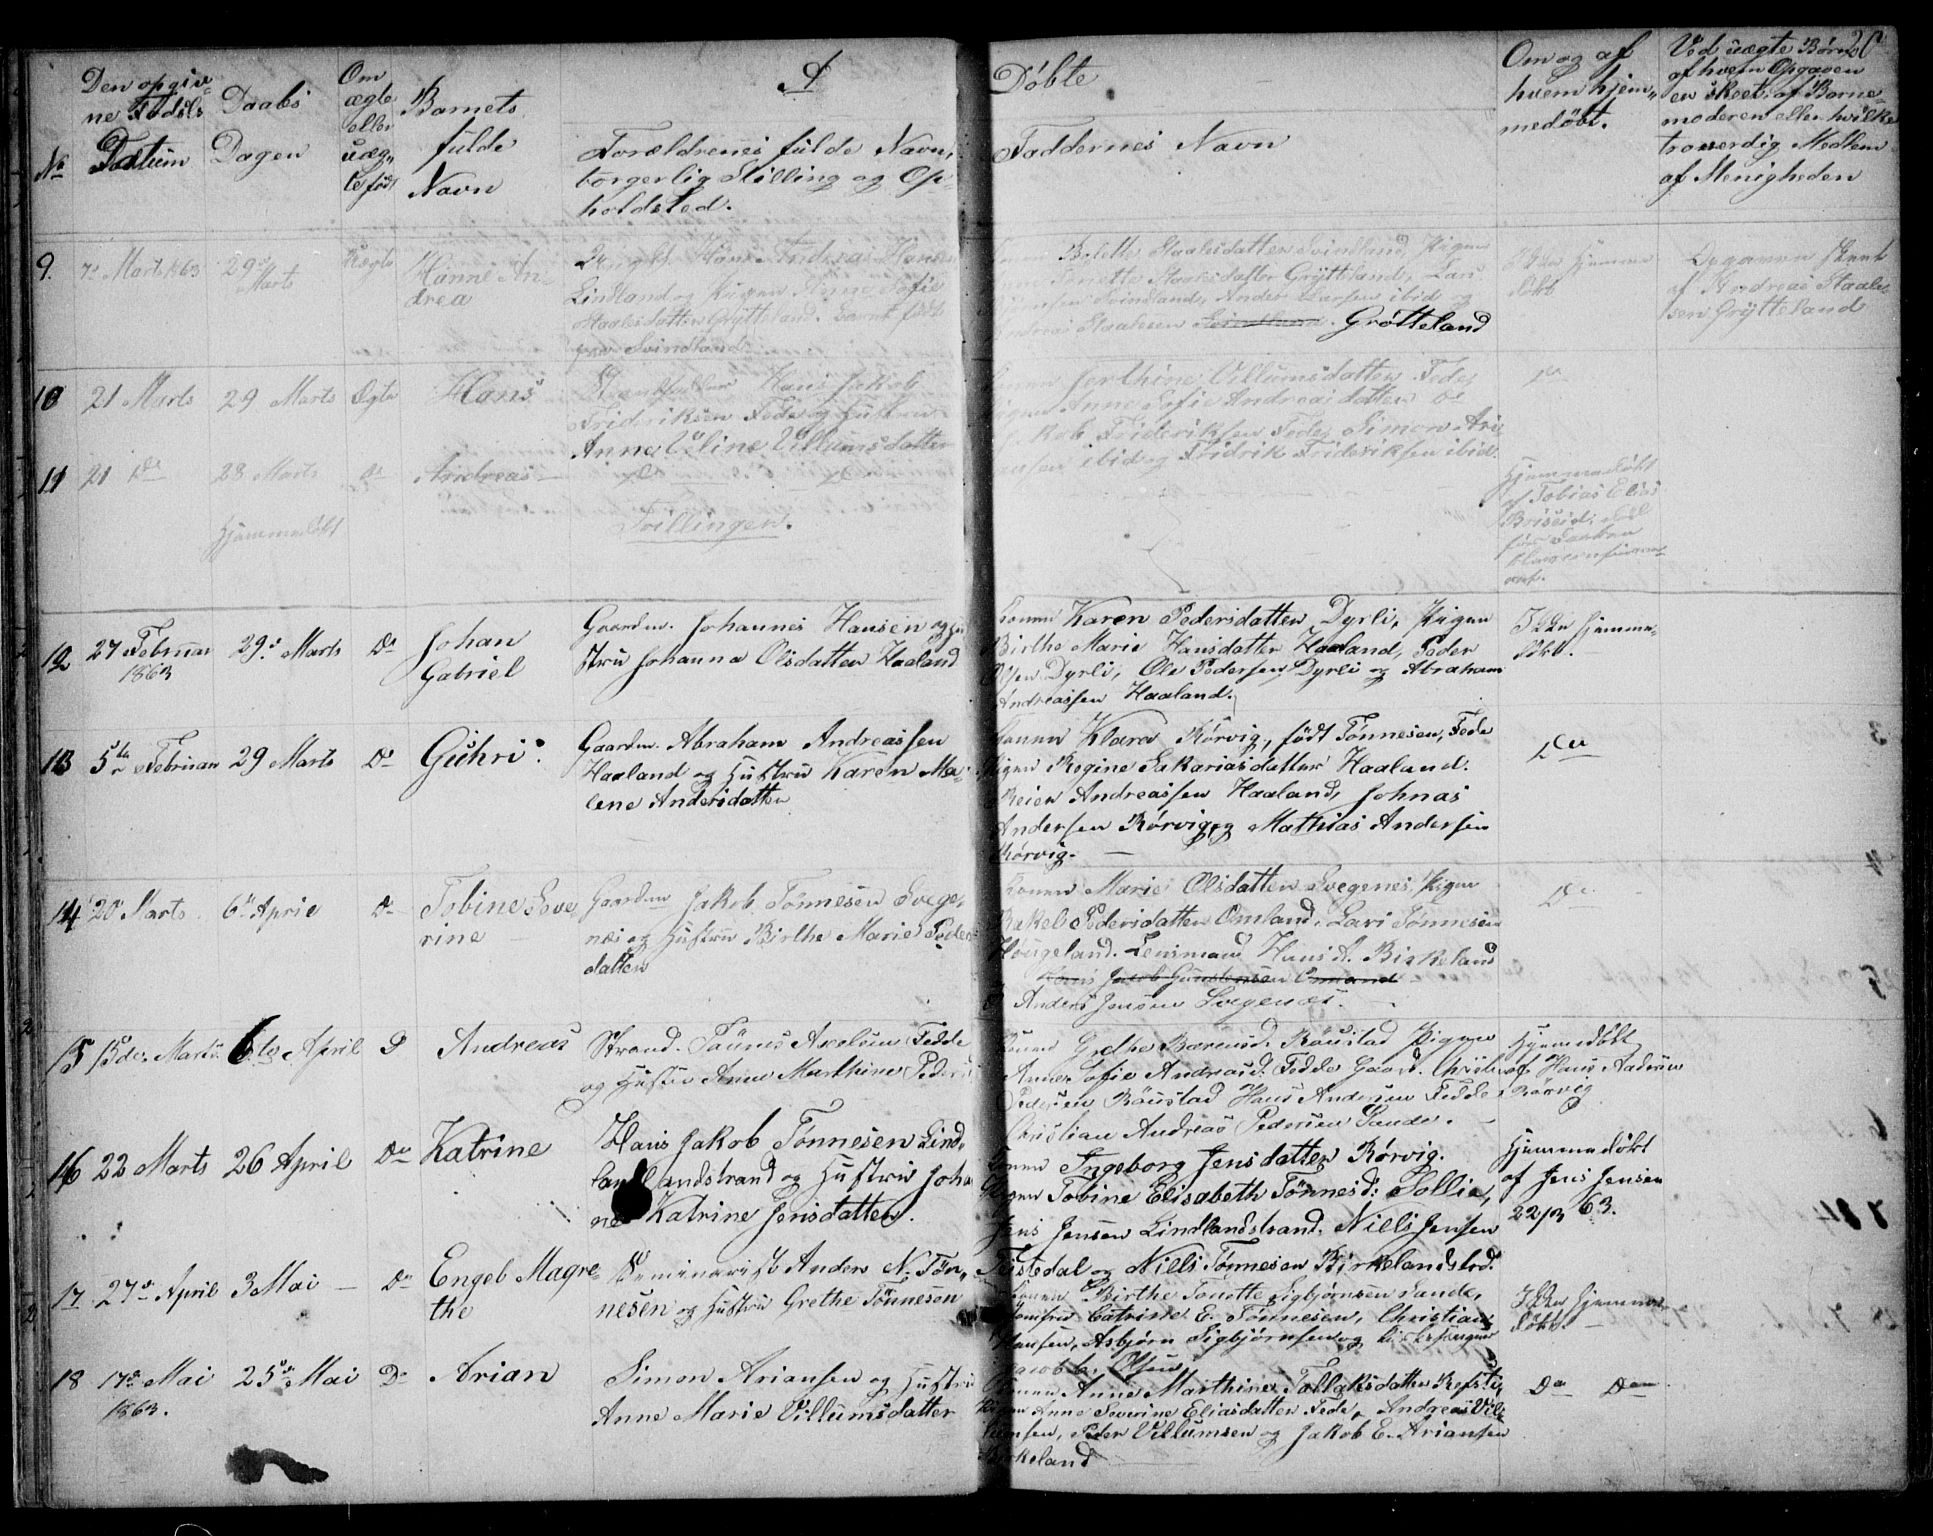 A
Døbte
20
No
Den opgiv-
ne Fødsls
Datum
Daabs
Dagen
Om
ægte
eller
uæg-
te født
Barnets
fulde
Navn
Forældrenes fulde Navn,
borgerlig Stilling og Op-
holdsted.
Faddernes Navn
Om og af
hvem hjem-
medøbt.
Ved uægte Børn
af hvem Opgaven
er skeet, af Barne-
moderen eller hvilke
troværdig Medlem
af Menigheden
9.
7de Marts 1863
29de
Marts
Uægte
Hanne An-
drea
Ungk. Hans Andreas Hansen
Lindland og Pigen Anne Sofie
Staalesdatter Grytteland. Barnet født
paa Svindland
Konen Bolette Staalesdatter Svindland, Pigen
Tonette Staalesdatter Grytteland, Lars
Svindland, Anders Larsen ibid og
Andreas Staalesen Svindland. Grøtteland
Ikke hjemme
døbt
Opgaven skeet
af Andreas Staale-
sen Grytteland
10
21 Marts
29 Marts
Ægte
Hans
Strandsidder Hans Jakob
Frideriksen Fede og Hustru
Anne Eline Villumsdatter
Konen Serthine Villumsdatter Fede,
Pigen Anne Sofie Andreasdatter Do
Jakob Frideriksen Fede, Simon Ari-
ansen ibid og Fridrik Frideriksen ibid.
Do
11
21 Do
28 Marts
Hjemmedøbt
Do
Andreas
Do
Tvillinger.
Hjemmedøbt
af Tobias Elias
Briseid, død
før Daaben
12
27 Februar
1863
29de Marts
Do
Johan
Gabriel
Gaardm. Johannes Hansen og Hu-
stru Johanna Olsdatter Haaland
Konen Karen Pedersdatter Dyrli, Pigen
Birthe Marie Hansdatter Haaland, Peder
Olsen Dyrli, Ole Pedersen Dyrli og Abraham
Andreassen Haaland.
Ikke hjemme-
døbt.
13
5te Februar
29 Marts
Do
Guhri.
Gaardm. Abraham Andreassen
Haaland og Hustru Karen Ma-
lene Andersdatter
Konen Klara Rørvig, født Tønnesen, Fede
Pigen Regine Sakariasdatter Haaland.
Reier Andreassen Haaland, Johnas
Andersen Rørvig og Mathias Andersen
Rørvig.
Do
14
20 Marts
6te April
Do
Tobine Seve
rine
Gaardm Jakob Tønnesen Svege-
næs og Hustru Birthe Marie Peders
datter
Konen Marie Olsdatter Svegenes, Pigen
Rakel Pedersdatter Omland. Lars Tønnesen
Høugeland. Lensmand Hans A. Birkeland
Hans Jacob Gundersen Omland
Anders Jensen Svegenæs.
Do
15
15de Marts
6te April
D
Andreas
Strand. Taünes Axelsen Fedde
og Hustru Anne Marthine Peders
Konen Grethe Bærensd. Røustad Pigen
Anne Sofie Andreasd. Fedde Gaard. Christen
Pedersen Røustad Hans Andersen Fedde
Christian Andreas Pedersen Sande.
Hjemmedøbt
af Hans Andersen
Rørvig
16
22 Marts
26 April
Do
Katrine
Hans Jakob Tønnesen Lind-
landstrand og Hustru Joha
ne Katrine Jensdatter.
Konen Ingeborg Jensdatter Rørvig.
Pigen Tobine Elisabeth Tønnesd: Sollie,
Jens Jensen Lindlandstrand. Niels Jensen
Feistedal og Niels Tønnesen Birkelandstrd.
Hjemmedøbt
af Jens Jensen
22/3 63.
17
27de April
3 Mai
Do
Engel Magre-
the
Seminarist Anders N. Tøn-
nesen og Hustru Grethe Tønnesen
Konen Birthe Tonette Sigbjørnsen Sande,
Jomfru Catrine E. Tønnesen, Christian
Hansen, Asbjørn Sigbjørnsen og
Jacob Olsen
Ikke hjemme-
døbt.
18
17de Mai
1863.
25de Mai
Do
Arian
Simon Ariansen og Hustru
Anne Marie Villumsdatter
Konen Anne Marthine Tallaksdatter Refsti,
Pigen Anne Severine Eliasdatter Fede, Andreas Vil-
lumsen, Peder Villumsen og Jakob E. Ariansen
Birkeland
Do Do